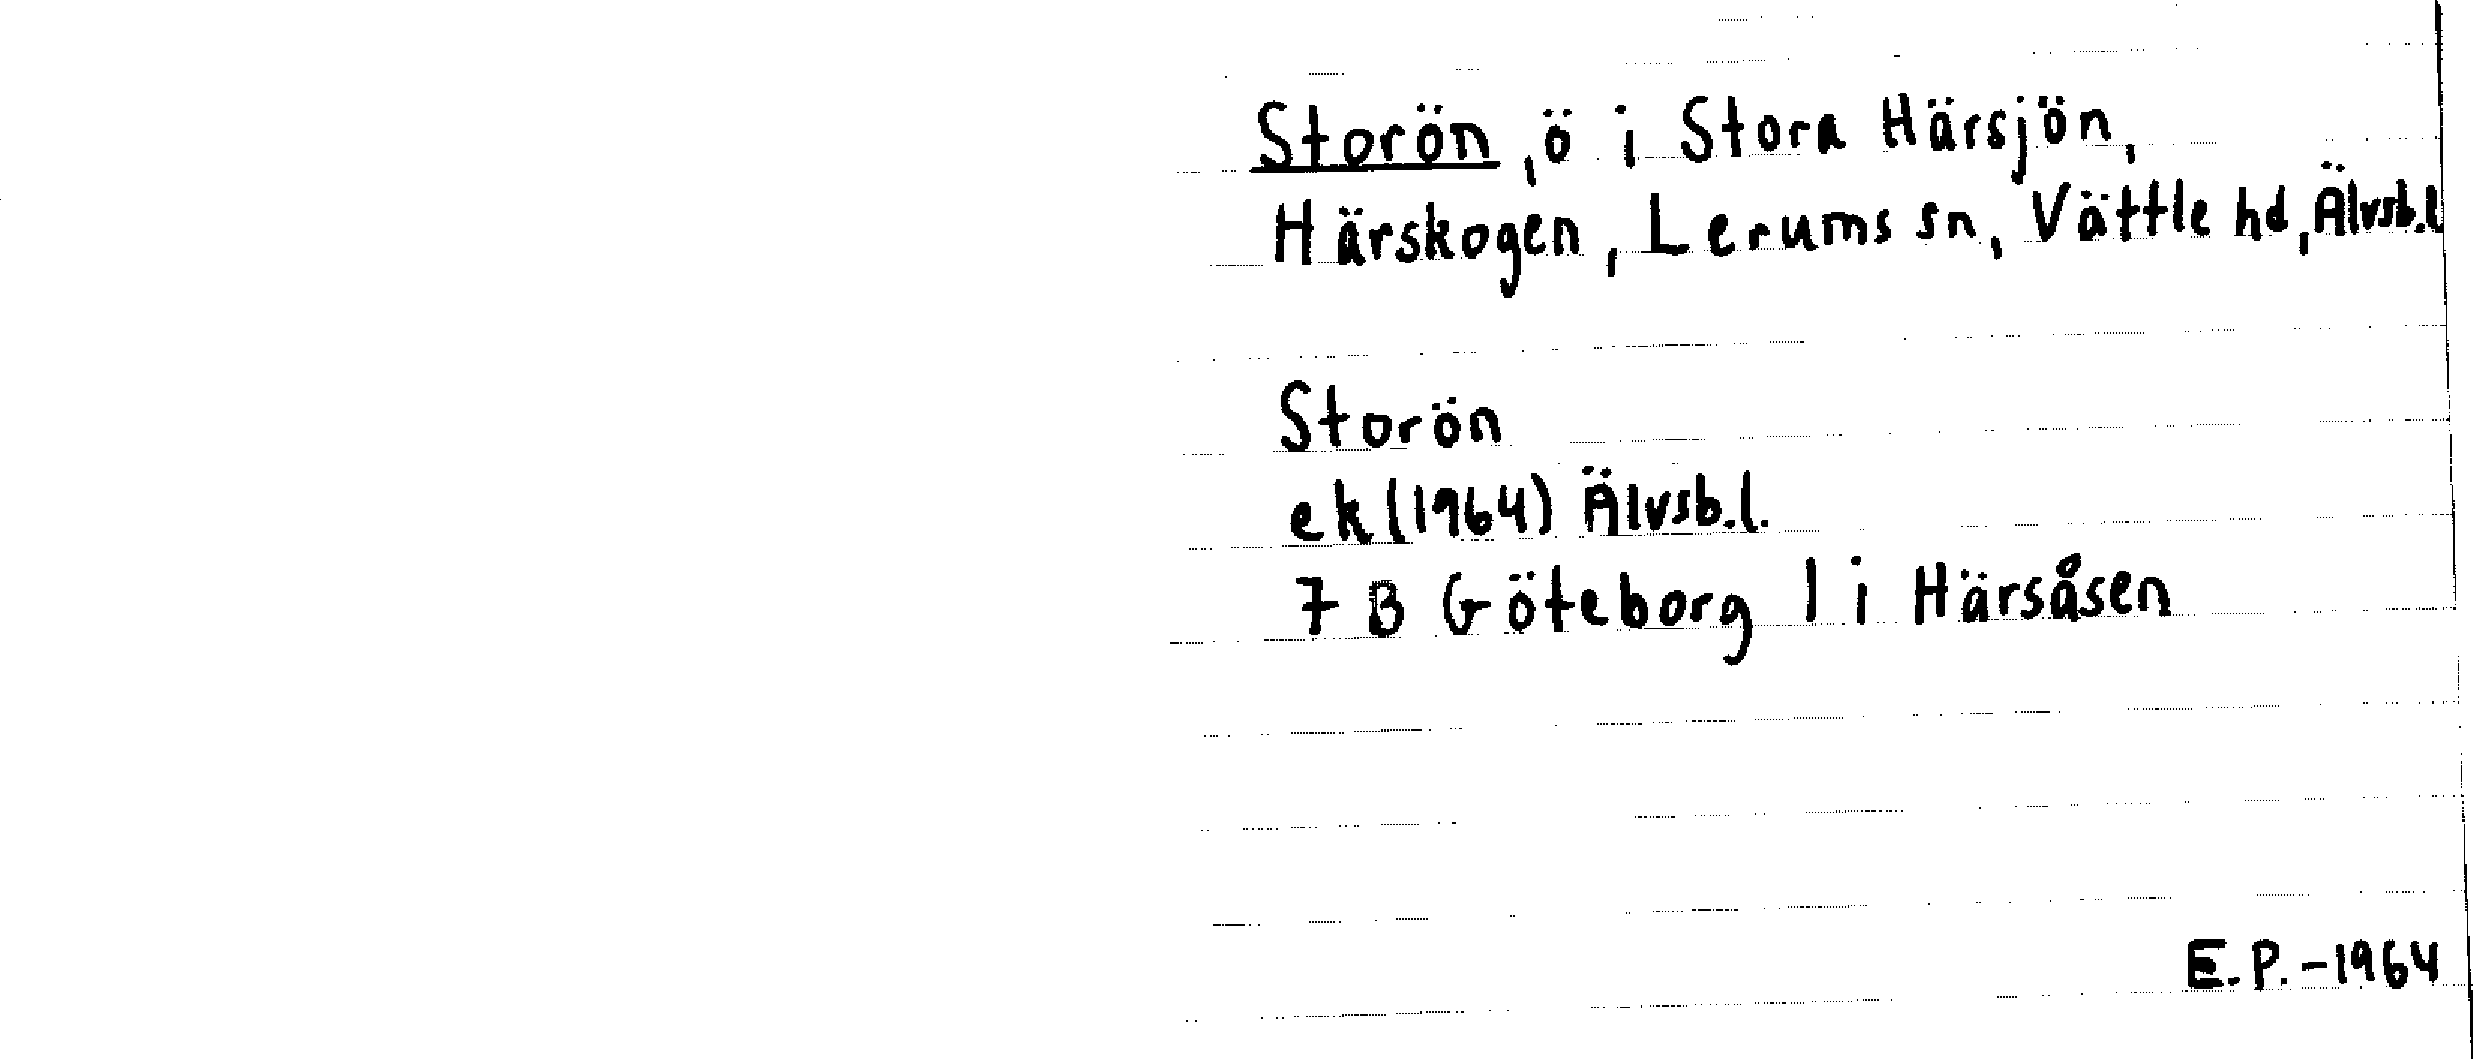 Storön, ö i Stora Härsjön,
Härskogen, Lerums sn, Vättle hd, Älvsb.l
Storön
ek (1964) Älvsb.l.
7 B Göteborg 1 i Härsåsen
E.P. -1964